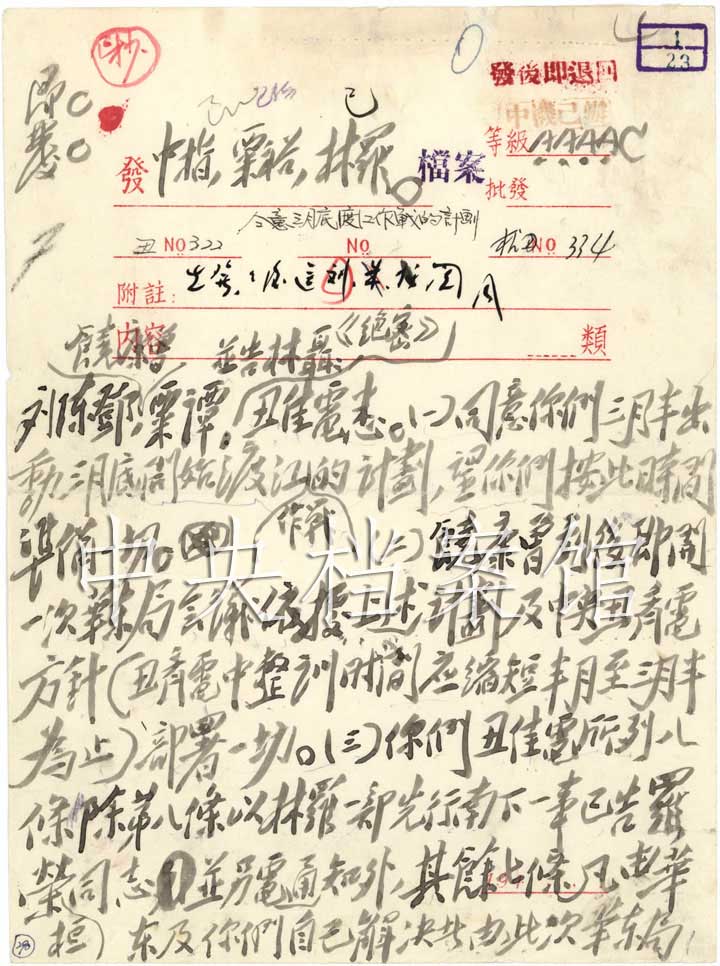 1
23
發後即退回
中機已辦
等級 AAAAC
發 中指, 粟裕, 林羅。
檔案
批發
同意三月底渡江作戰的計劃
丑 NO 322
NO
NO 334
附註:
內容
類
饒康曾, 並告林聶《绝密》
刘陈鄧, 粟譚, 丑佳電悉。(一)同意你們三月半出
動三月底開始渡江的計劃, 望你們按此時間
作戰
準備一切。(二)饒康曾到後即開
一次華東局会議, 依據上述計劃及中央丑齊電
方針(丑齊電中整訓时间应缩短半月至三月半
為止)部署一切。(三)你們丑佳電所列八
條, 除第八條以林羅一部先行南下一事已告羅
榮同志並另電通知外, 其餘七條凡由華
桓
東及你們自己解決者由此次華東局
中央档案馆